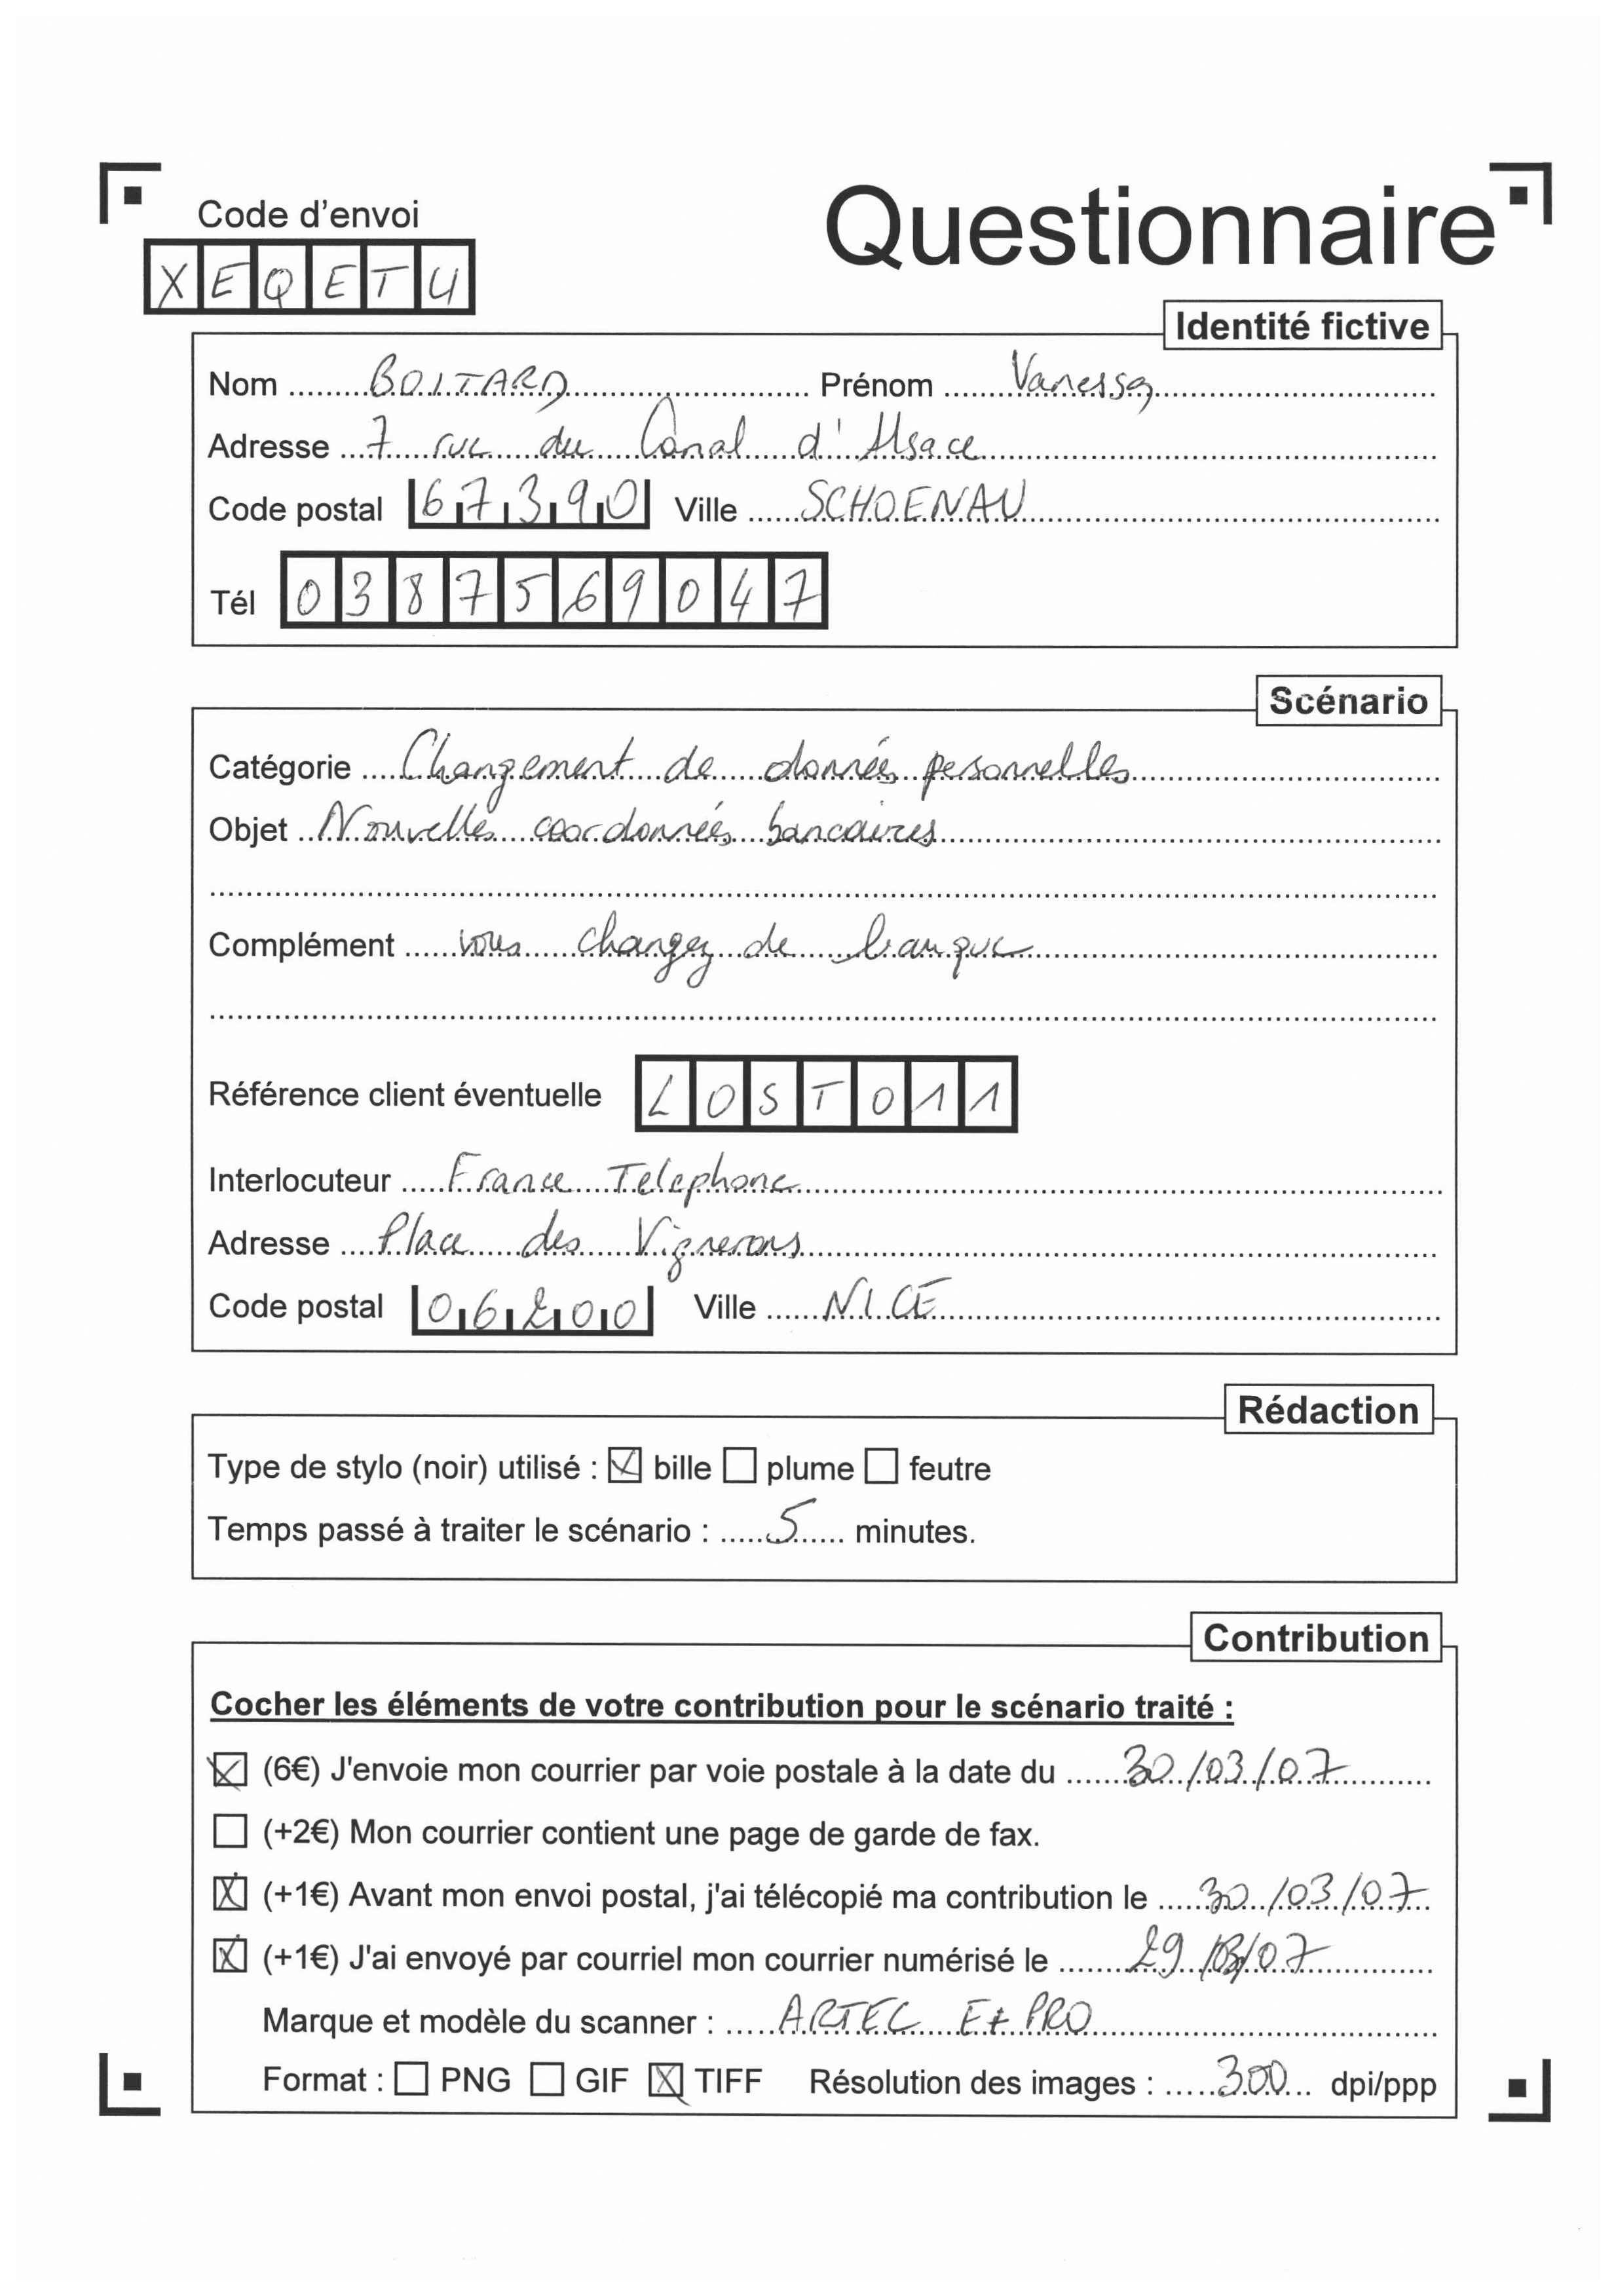 Code d'envoi
Questionnaire
XEQETU
Identité fictive
Nom ........BOITARD........ Prénom ......Vanessa......
Adresse ...7 rue du Canal d'Alsace......
Code postal 67390 Ville ......SCHOENAU......
Tél 0387569047
Scénario
Catégorie ....Changement de données personnelles......
Objet ...Nouvelles coordonnées bancaires......
Complément ......vous changez de banque......
Référence client éventuelle LOST011
Interlocuteur .....France Telephone......
Adresse ....Place des Vignerons......
Code postal 06200 Ville ......NICE......
Rédaction
Type de stylo (noir) utilisé : ☒ bille ☐ plume ☐ feutre
Temps passé à traiter le scénario : .....5...... minutes.
Contribution
Cocher les éléments de votre contribution pour le scénario traité :
☒ (6€) J'envoie mon courrier par voie postale à la date du ......30/03/07......
☐ (+2€) Mon courrier contient une page de garde de fax.
☒ (+1€) Avant mon envoi postal, j'ai télécopié ma contribution le .....30/03/07...
☒ (+1€) J'ai envoyé par courriel mon courrier numérisé le ........29/03/07......
Marque et modèle du scanner : .....ARTEC E+ PRO......
Format : ☐ PNG ☐ GIF ☒ TIFF Résolution des images : .....300... dpi/ppp